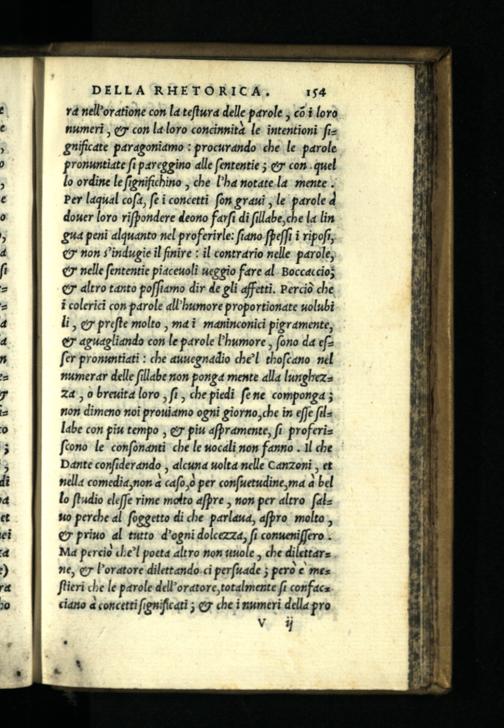 DELLA RHETORICA. 154
ra nell'oratione con la testura delle parole, cõ i loro
numeri, & con la loro concinnità le intentioni si=
gnificate paragoniamo: procurando che le parole
pronuntiate si pareggino alle sententie; & con quel
lo ordine le significhino, che l'ha notate la mente.
Per laqual cosa, se i concetti son graui, le parole à
douer loro rispondere deono farsi di sillabe, che la lin
gua peni alquanto nel proferirle: siano spessi i riposi,
& non s'indugie il finire: il contrario nelle parole,
& nelle sententie piaceuoli ueggio fare al Boccaccio;
& altro tanto possiamo dir de gli affetti. Perciò che
i colerici con parole all'humore proportionate uolubi
li, & preste molto, ma i maninconici pigramente,
& aguagliando con le parole l'humore, sono da es=
ser pronuntiati: che auuegnadio che'l thoscano nel
numerar delle sillabe non ponga mente alla lunghez=
za, o breuita loro, si, che piedi se ne componga;
non dimeno noi prouiamo ogni giorno, che in esse sil=
labe con piu tempo, & piu aspramente, si proferi=
scono le consonanti che le uocali non fanno. Il che
Dante considerando, alcuna uolta nelle Canzoni, et
nella comedia, non à caso, ò per consuetudine, ma à bel
lo studio elesse rime molto aspre, non per altro sal=
uo perche al soggetto di che parlaua, aspro molto,
& priuo al tutto d'ogni dolcezza, si conuenissero.
Ma perciò che'l poeta altro non uuole, che dilettar=
ne, & l'oratore dilettando ci persuade; però è me=
stieri che le parole dell'oratore, totalmente si confac=
ciano à concetti significati; & che i numeri della pro
V ij